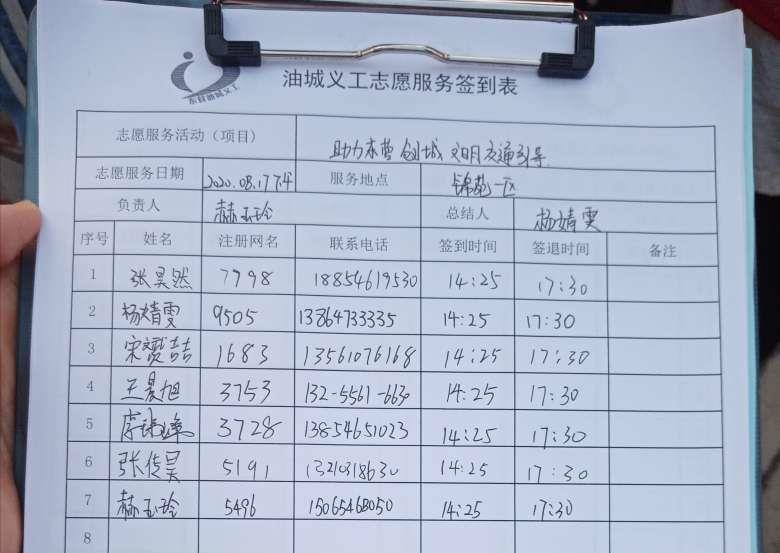 东营油城义工
油城义工志愿服务签到表
志愿服务活动（项目） 助力东营创城 文明交通引导
志愿服务日期 2020.08.17下午 服务地点 锦苑一区
负责人 赫玉玲 总结人 杨婧雯
序号 姓名 注册网名 联系电话 签到时间 签退时间 备注
1 张昊然 7798 18854619530 14:25 17:30
2 杨婧雯 9505 13864733335 14:25 17:30
3 宋喆 1683 13561076168 14:25 17:30
4 王晨旭 3753 132-5561-6630 14:25 17:30
5 3728 13854651023 14:25 17:30
6 张俊昊 5191 14:25 17:30
7 赫玉玲 5496 15065468050 14:25 17:30
8